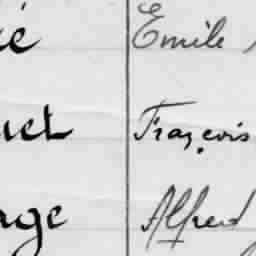 ié Emile
uet Fraçois
age Alfred